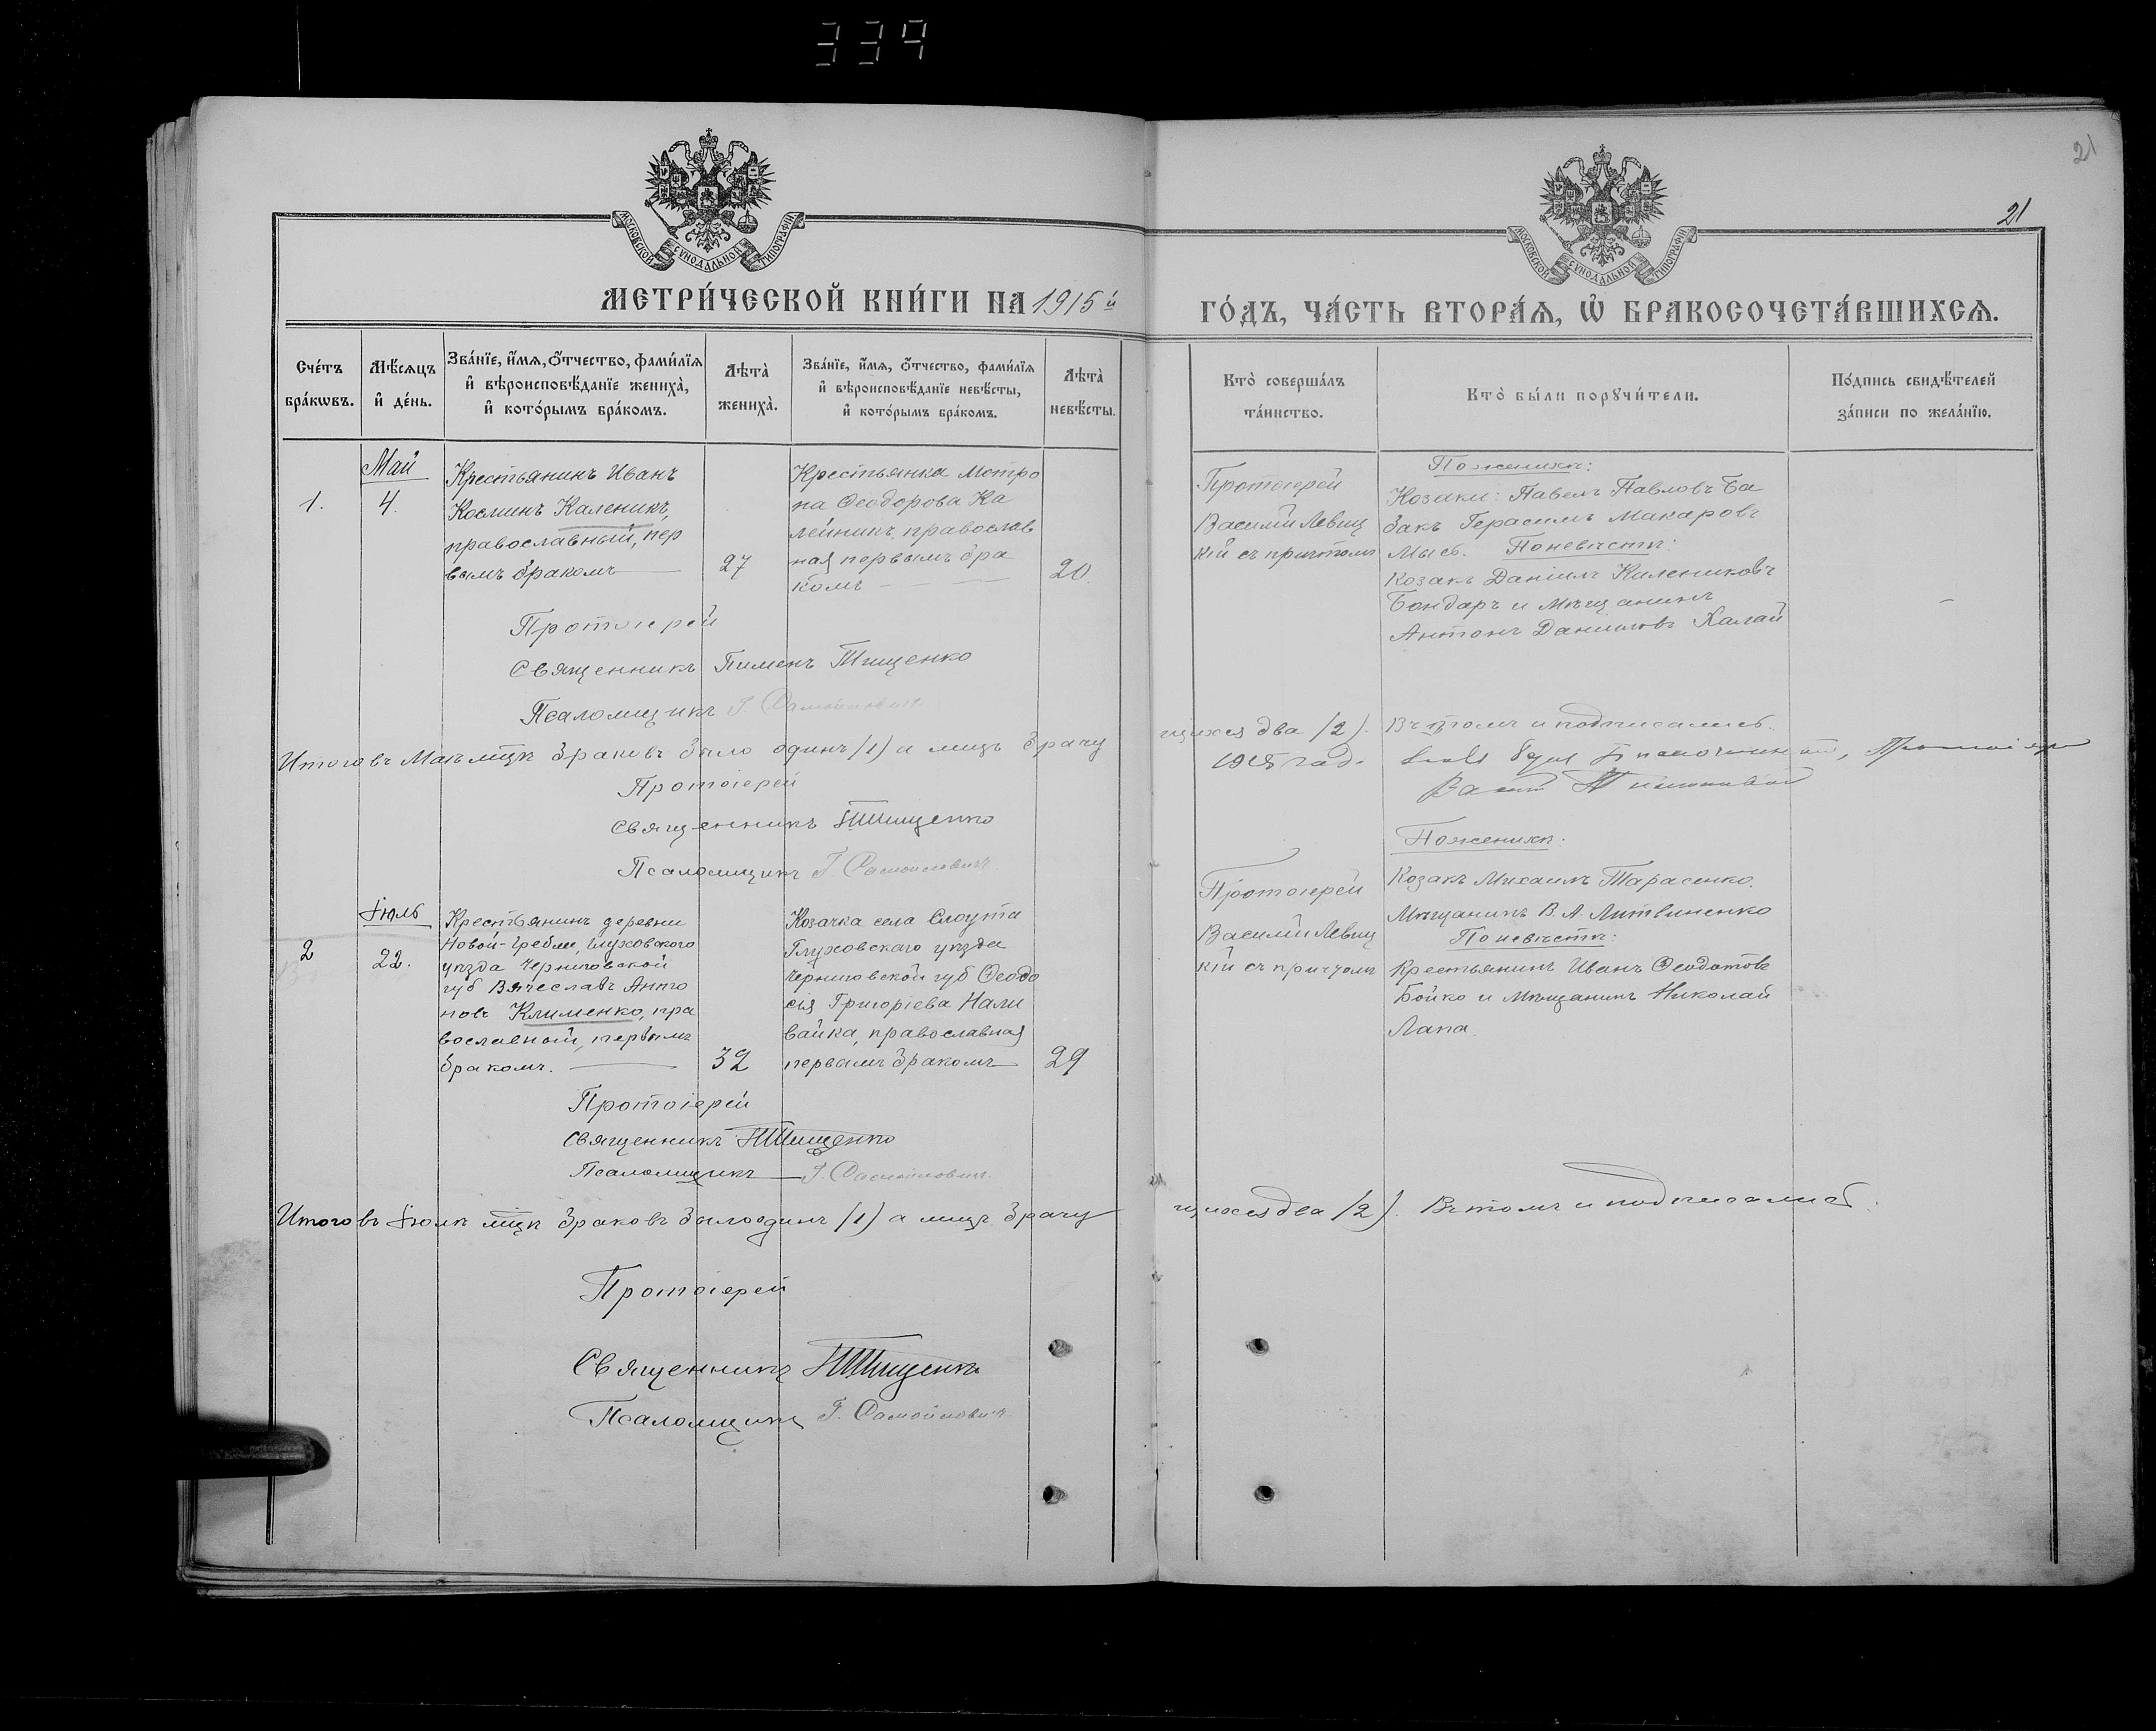 339
21
21
МОСКОВСКОЙ СѴНОДАЛЬНОЙ ТИПОГРАФІИ
МОСКОВСКОЙ СѴНОДАЛЬНОЙ ТИПОГРАФІИ
МЕТРИ́ЧЕСКОЙ КНИ́ГИ НА 1915й
ГО́ДЪ, ЧА́СТЬ ВТОРА́Ѧ, Ѽ БРАКОСОЧЕТА́ВШИХСѦ.
Сче́тъ бра́кѡвъ.
Мѣ́сяцъ и҆ де́нь.
Зва́нїе, и҆́мѧ, ѻ҆́тчество, фами́лїѧ и҆ вѣроисповѣ́данїе жениха̀, и҆ кото́рымъ бра́комъ.
Лѣта̀ жениха̀.
Зва́нїе, и҆́мѧ, ѻ҆́тчество, фами́лїѧ и҆ вѣроисповѣ́данїе невѣ́сты, и҆ кото́рымъ бра́комъ.
Лѣта̀ невѣ́сты.
Кто̀ соверша́лъ та́инство.
Кто̀ бы́ли порꙋчи́тели.
По́дпись свидѣ́телей за́писи по жела́нїю.
Май
1.
4.
Крестьянинъ Иванъ
Косминъ Каленикъ,
православный, пер
вымъ бракомъ
27
Крестьянка Мотро
на Ѳеодорова Ка
лейникъ, православ
ная первымъ бра
комъ
20
Протоіерей
Василій Левиц
кій съ причтомъ
По женихѣ:
Козаки: Павелъ Павловъ Ба
бакъ Герасимъ Макаровъ
По невѣстѣ:
Козакъ Даніилъ Калениковъ
Бондарь и мѣщанинъ
Антонъ Даниловъ Калай
Протоіерей
Священникъ Пименъ Тищенко
Псаломщикъ Г. Самойловичъ
Итого въ Маѣ мцѣ браковъ было одинъ (1) а лицъ брачу
щихся два (2). Въ томъ и подписались.
1915 год.
Протоіерей
Священникъ ПТищенко
Псаломщикъ Г. Самойловичъ
Іюль
2
22.
Крестьянинъ деревни
Новой-Гребли, Глуховского
уѣзда Черниговской
губ Вячеславъ Анто
новъ Клименко, пра
вославный, первымъ
бракомъ.
32
Козачка села Слоута
Глуховскаго уѣзда
Черниговской губ Ѳеодо
сія Григоріева Нали
вайка, православная
первымъ бракомъ
29
Протоіерей
Василій Левиц
кій съ причтомъ
По женихѣ:
Козакъ Михаилъ Тарасенко.
Мѣщанинъ В. А. Литвиненко
По невѣстѣ:
Крестьянинъ Иванъ Ѳеодотовъ
Бойко и мѣщанинъ Николай
Лапа.
Протоіерей
Священникъ ПТищенко
Псаломщикъ Г. Самойловичъ
Итого въ Іюлѣ мцѣ браковъ было одинъ (1) а лицъ брачу
щихся два (2). Въ томъ и подписались.
Протоіерей
Священникъ ПТищенко
Псаломщикъ Г. Самойловичъ